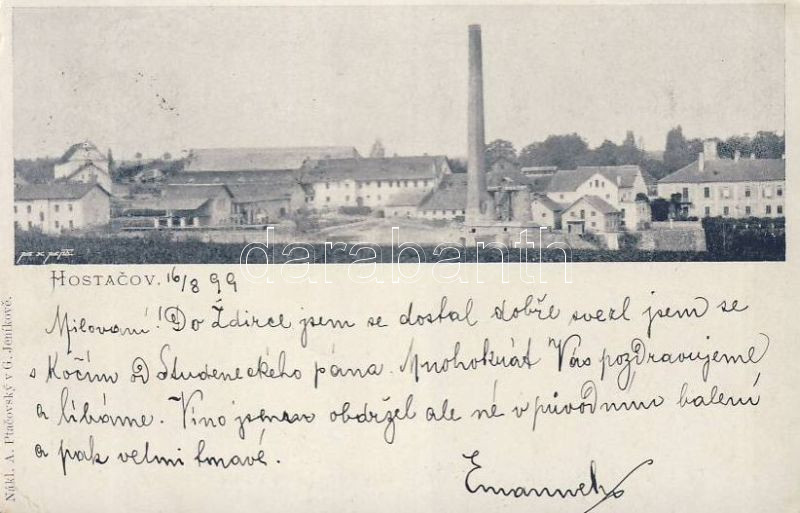 HOSTAČOV. 16/8 99
Milovaní! Do Ždirce jsem se dostal dobře svezl jsem se
s Kočím od Studeneckého pána. Mnohokrát Vás pozdravujeme
a líbáme. Víno jsem obdržel ale né v původním balení
a pak velmi tmavé.
Nákl. A. Ptačovský v G. Jeníkově.
darabanth